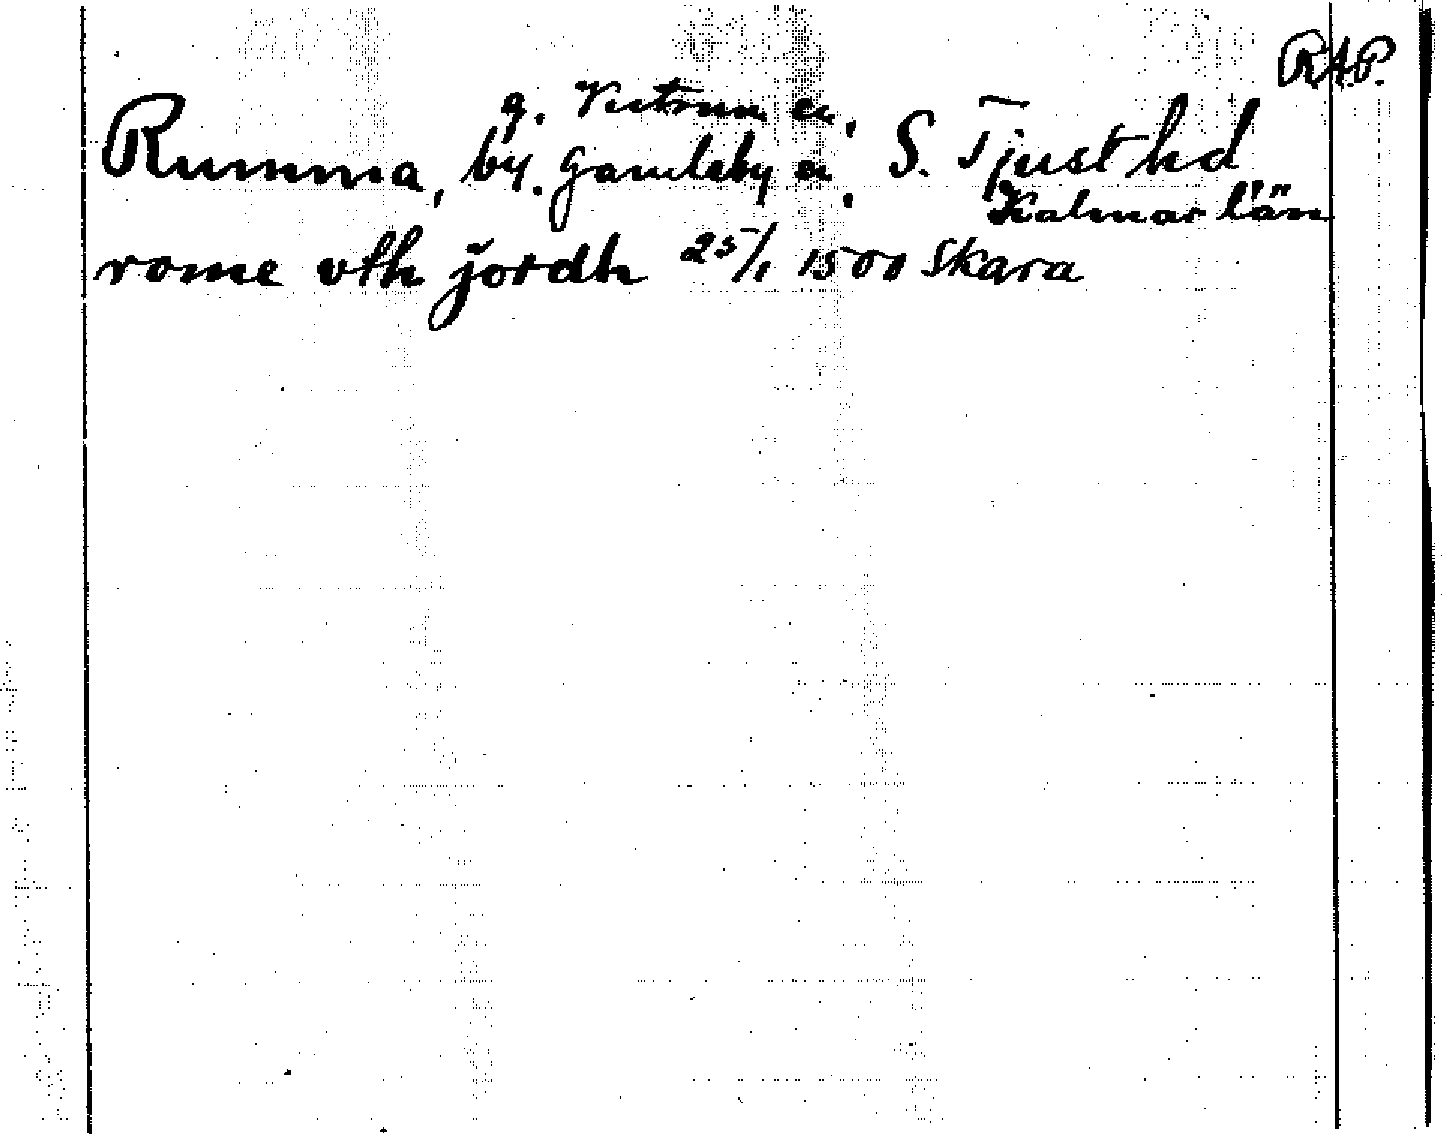 RAP.
g. Västrum sn,
Rumma, by. Gamleby sn, S. Tjust hd
Kalmar län
rome vth jordh 25/1 1500 Skara